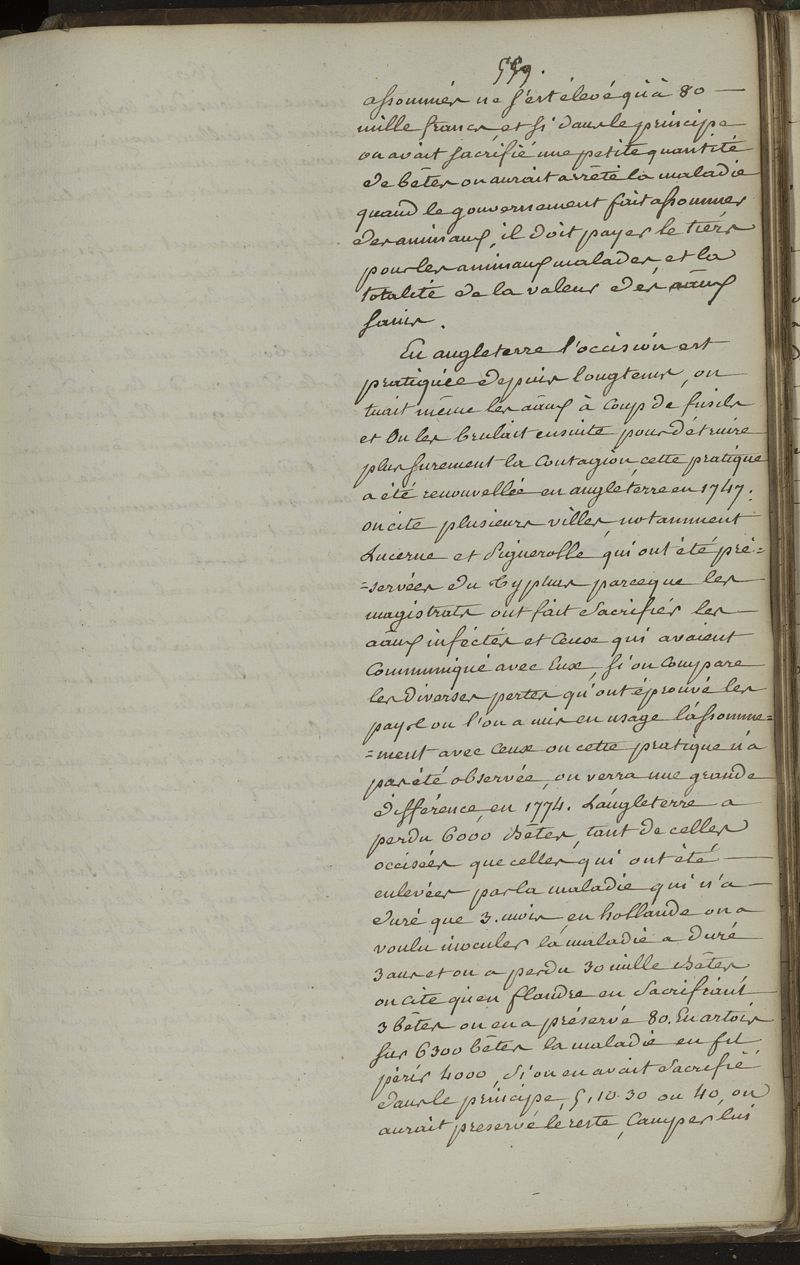 559.
assommés ne s'est élevé qu'à 80 —
mille francs, et si dans le principe
on avait sacrifié une petite quantité
de bêtes on aurait arrêté la maladie
quand le gouvernement fait assommer
des animaux, il doit payer le tiers
pour les animaux malades, et la
totalité de la valeur des aāux
sains.
En angleterre l'occision est
pratiquée depuis longtems, on
tuait même les aāux à coup de fusils
et on les brulait ensuite pour détruire
plus surement la contagion, cette pratique
a été renouvellée en angleterre en 1747.
on cite plusieurs villes notamment
Lucerne et Pignerolle, qui ont été pré=
=servées du typhus parceque les
magistrats ont fait sacrifiés les —
aāux infectés et ceux qui avaient
communiqué avec eux, si on compare
les diverses pertes qu'ont éprouvé les
pays ou l'on a mis en usage l'assomme=
=ment avec ceux ou cette pratique n'a
pas été observée, on verra une grande
différence, en 1774. L'angleterre a
perdu 6000 bêtes, tant de celles
occisées que celles qui ont été —
enlevées par la maladie qui n'a —
duré que 3. mois, en hollande on a
voulu inoculer la maladie a duré
3 ans et on a perdu 30 mille bêtes
on cite qu'en flandre en sacrifiant
3 bêtes on en a préservé 80. En artois
sur 6300 bêtes la maladie en fit
périr 4000, si on en avait sacrifié
dans le principe, 5, 10. 30 ou 40, on
aurait preservé le reste, Camper lui